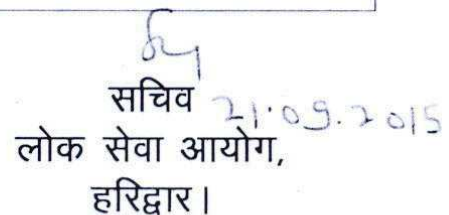 सचिव 21.09.2015
लोक सेवा आयोग,
हरिद्वार।